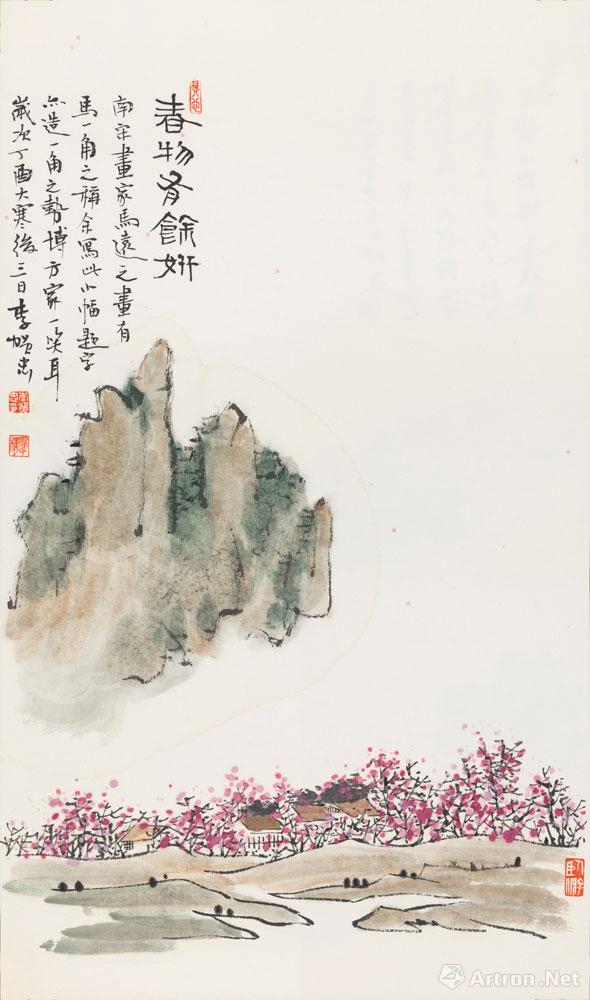 春物有餘妍
南宋畫家馬遠之畫有
馬一角之稱余寫此小幅題字
亦造一角之勢博方家一笑耳
歲次丁酉大寒後三日李
雅昌艺术网
Artron.Net